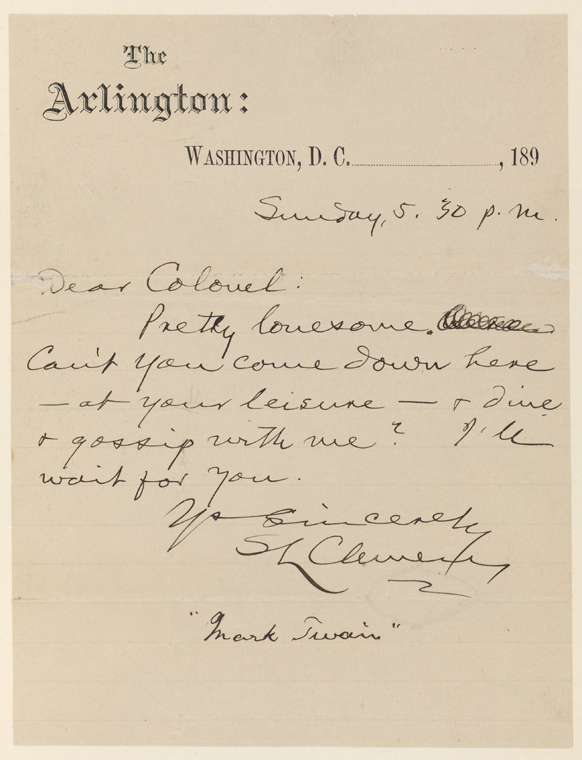 The
Arlington:
Washington, D. C. , 189
Sunday, 5.30 p.m.
Dear Colonel:
Pretty lonesome.
Can't you come down here
— at your leisure — & dine
& gossip with me? I'll
wait for you.
Ys Sincerely
SL Clemens
"Mark Twain"